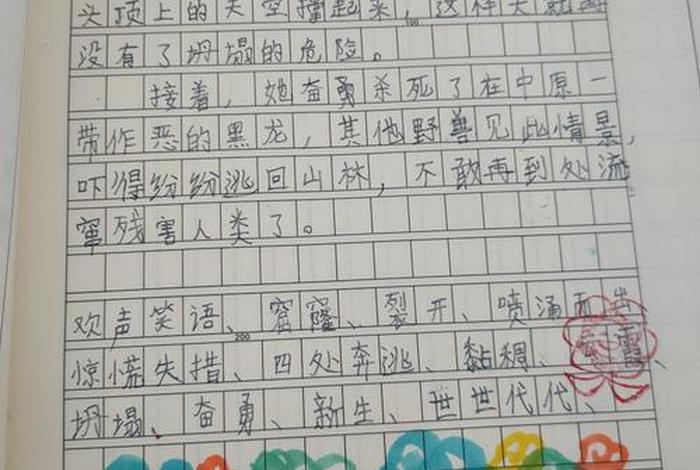 头顶上的天空撑起来，这样天就再
100
没有了坍塌的危险。
接着，她奋勇杀死了在中原一
带作恶的黑龙，其他野兽见此情景，
吓得纷纷逃回山林，不敢再到处流
窜残害人类了。
欢声笑语、窟窿、裂开、喷涌而出、
200
惊慌失措、四处奔逃、黏稠、霞、
坍塌、奋勇、新生、世世代代、